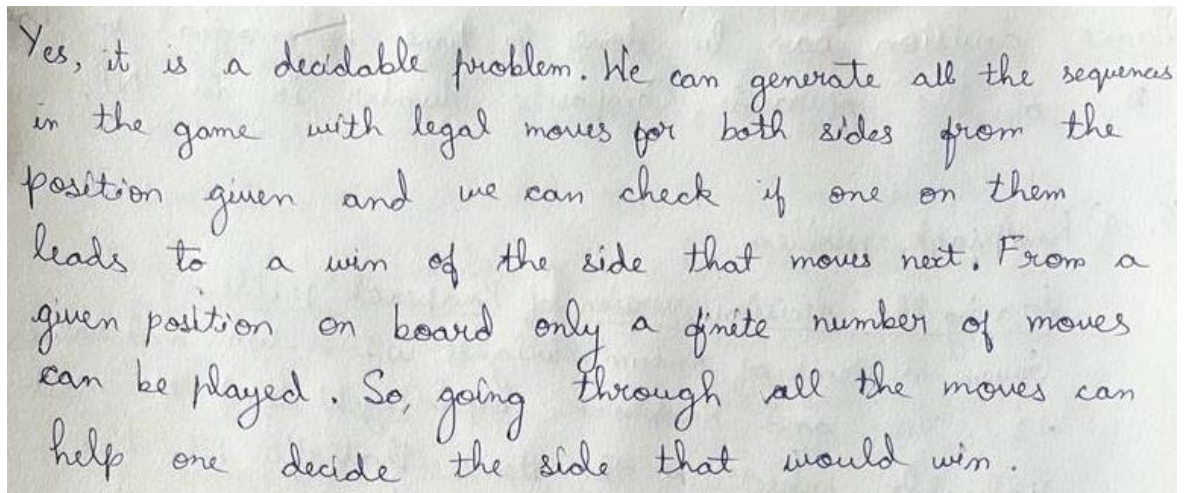 Yes, it is a decidable problem. We can generate all the sequences
in the game with legal moves for both sides from the
position given and we can check if one on them
leads to a win of the side that moves next. From a
given position on board only a finite number of moves
can be played. So, going through all the moves can
help one decide the side that would win.